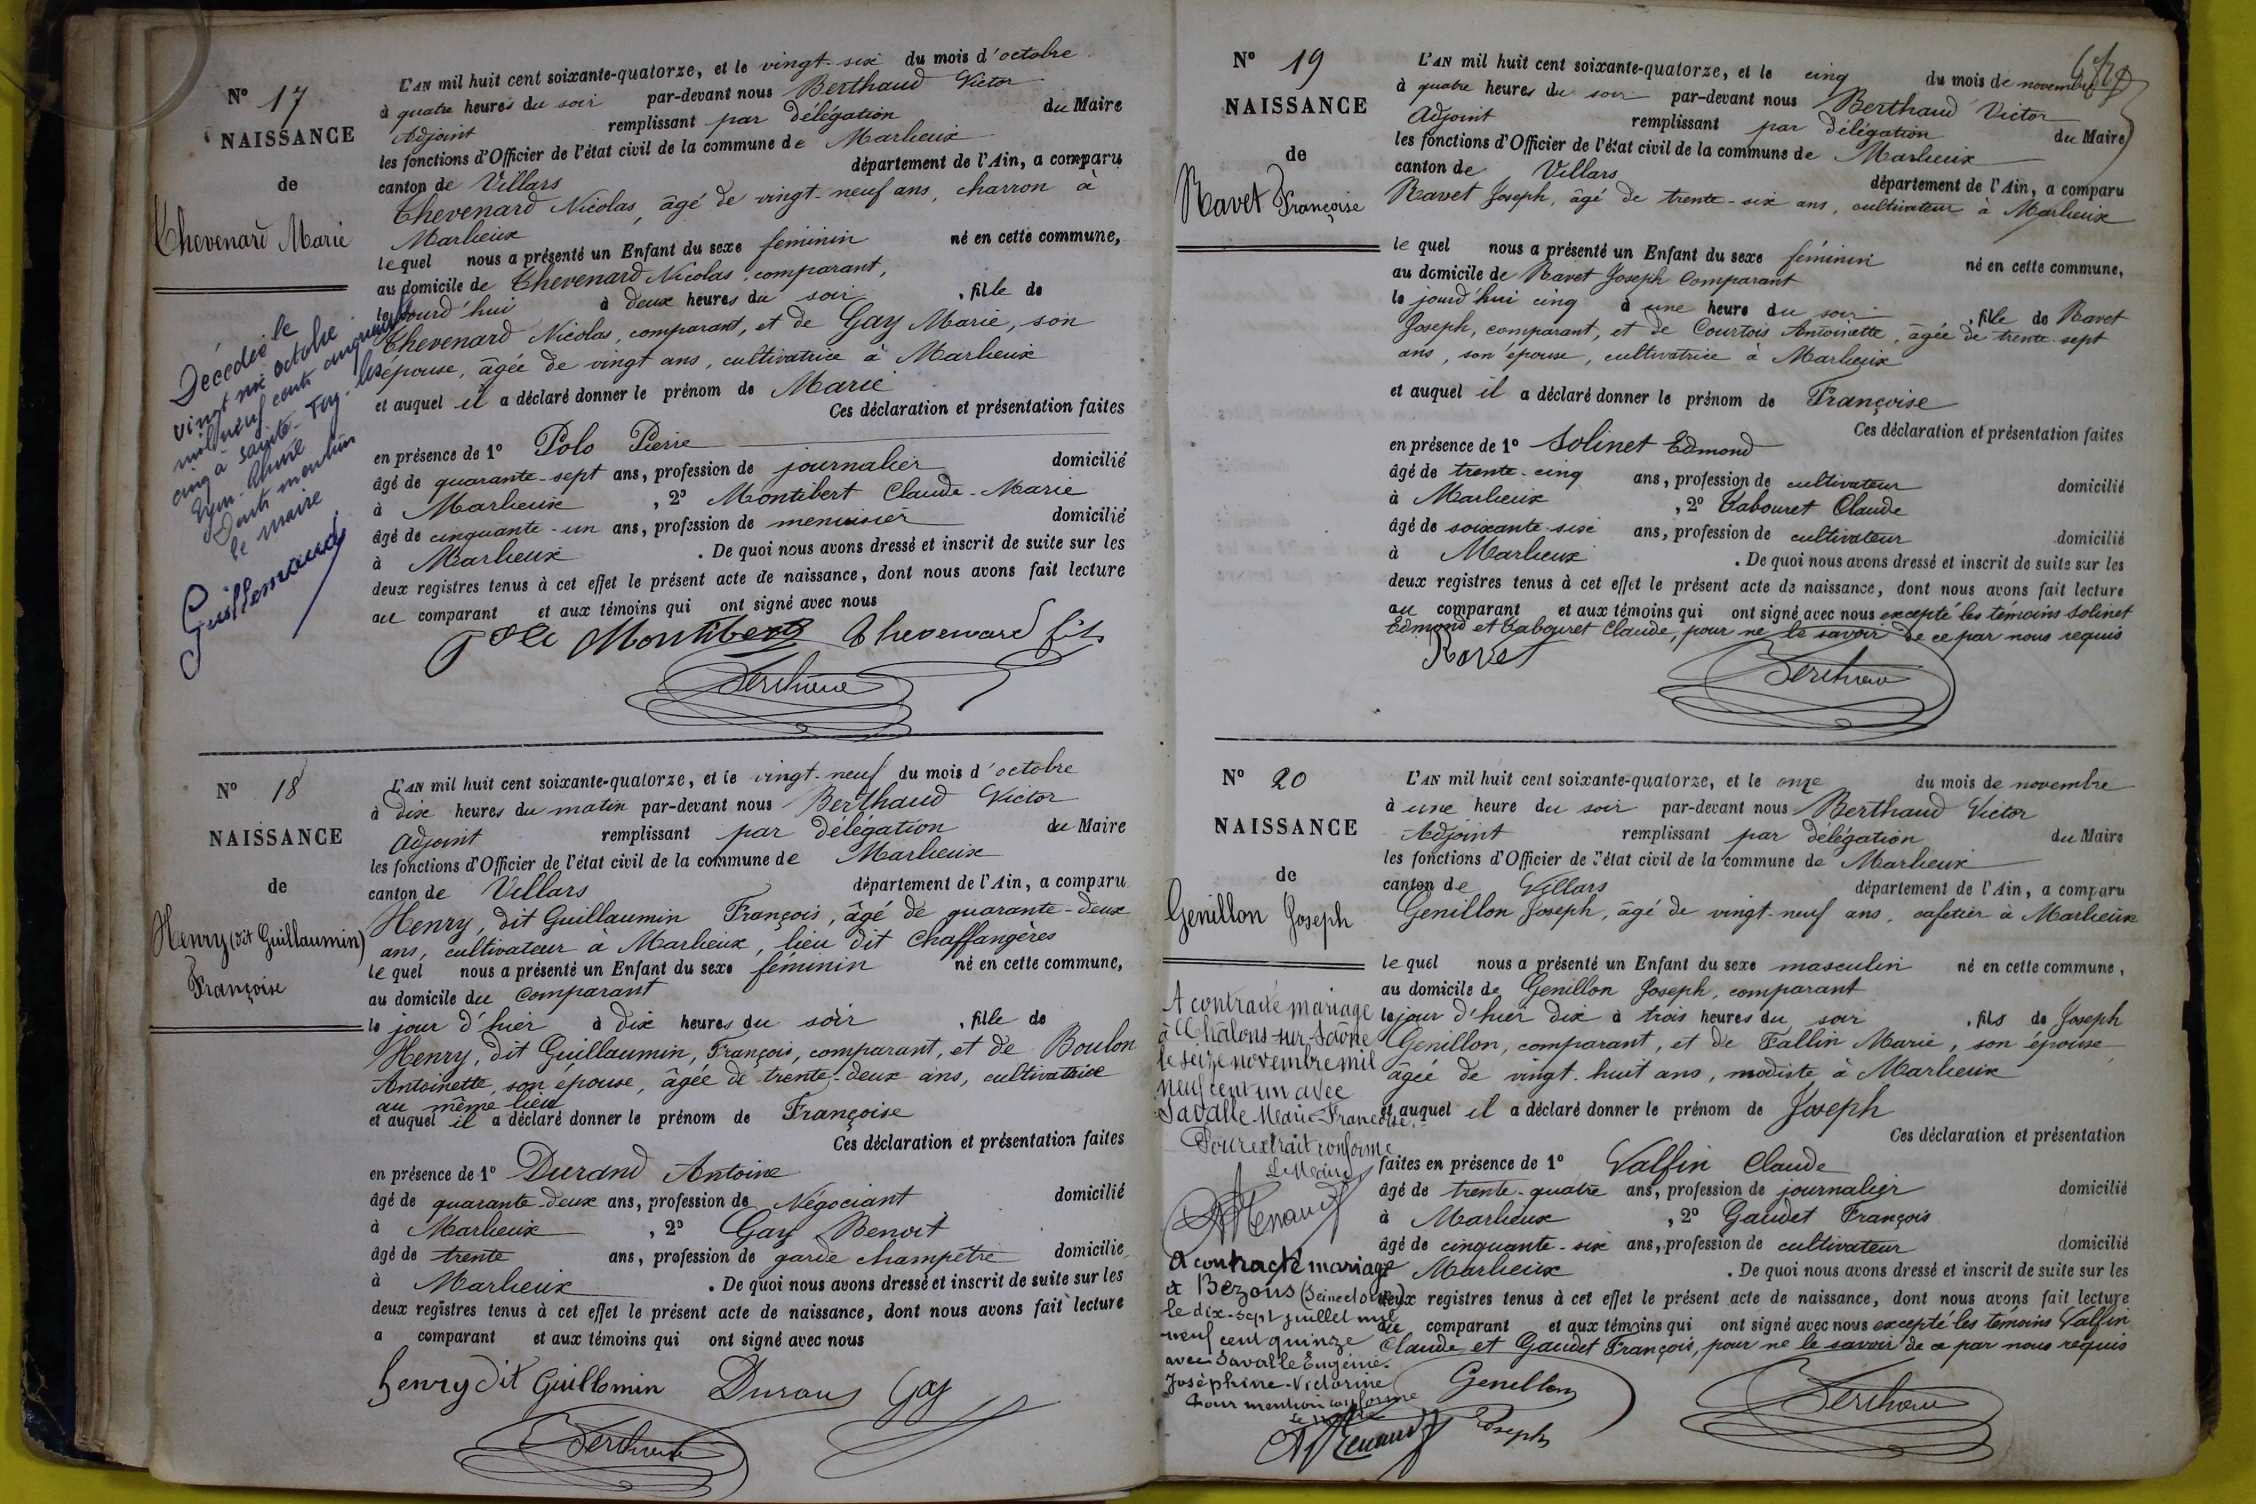 N° 17
NAISSANCE
de
Thevenard Marie
Décédée le
vingt six octobre
mil neuf cent cinquante
cinq à Sainte-Foy-les
Lyon. Rhône
Dont mention
le maire
Guillemaud
L'AN mil huit cent soixante-quatorze, et le vingt-six du mois d'octobre
à quatre heures du soir par-devant nous Berthaud Victor
Adjoint remplissant par délégation du Maire
les fonctions d'Officier de l'état civil de la commune de Marlieux
canton de Villars département de l'Ain, a comparu
Thevenard Nicolas, âgé de vingt-neuf ans, charron à
Marlieux
lequel nous a présenté un Enfant du sexe féminin né en cette commune,
au domicile de Thevenard Nicolas, comparant,
le jourd'hui à deux heures du soir, fille de
Thevenard Nicolas, comparant, et de Gay Marie, son
épouse, âgée de vingt ans, cultivatrice à Marlieux
et auquel il a déclaré donner le prénom de Marie
Ces déclaration et présentation faites
en présence de 1° Polo Pierre
âgé de quarante-sept ans, profession de journalier domicilié
à Marlieux, 2° Montibert Claude-Marie
âgé de cinquante-un ans, profession de menuisier domicilié
à Marlieux. De quoi nous avons dressé et inscrit de suite sur les
deux registres tenus à cet effet le présent acte de naissance, dont nous avons fait lecture
au comparant et aux témoins qui ont signé avec nous
Polo Montibert Thevenard fils
Berthaud
N° 18
NAISSANCE
de
Henry (dit Guillaumin)
Françoise
L'AN mil huit cent soixante-quatorze, et le vingt-neuf du mois d'octobre
à dix heures du matin par-devant nous Berthaud Victor
Adjoint remplissant par délégation du Maire
les fonctions d'Officier de l'état civil de la commune de Marlieux
canton de Villars département de l'Ain, a comparu
Henry, dit Guillaumin François, âgé de quarante-deux
ans, cultivateur à Marlieux, lieu dit Chaffangères
lequel nous a présenté un Enfant du sexe féminin né en cette commune,
au domicile du comparant
le jour d'hier à dix heures du soir, fille de
Henry, dit Guillaumin, François, comparant, et de Boulon
Antoinette, son épouse, âgée de trente-deux ans, cultivatrice
au même lieu
et auquel il a déclaré donner le prénom de Françoise
Ces déclaration et présentation faites
en présence de 1° Durand Antoine
âgé de quarante-deux ans, profession de Négociant domicilié
à Marlieux, 2° Gay Benoit
âgé de trente ans, profession de garde champêtre domicilié
à Marlieux. De quoi nous avons dressé et inscrit de suite sur les
deux registres tenus à cet effet le présent acte de naissance, dont nous avons fait lecture
a comparant et aux témoins qui ont signé avec nous
henry dit Guillomin Durand Gay
Berthaud
N° 19
NAISSANCE
de
Ravet Françoise
L'AN mil huit cent soixante-quatorze, et le cinq du mois de novembre
à quatre heures du soir par-devant nous Berthaud Victor
Adjoint remplissant par délégation du Maire
les fonctions d'Officier de l'état civil de la commune de Marlieux
canton de Villars département de l'Ain, a comparu
Ravet Joseph, âgé de trente-six ans, cultivateur à Marlieux
lequel nous a présenté un Enfant du sexe féminin né en cette commune,
au domicile de Ravet Joseph Comparant
le jourd'hui cinq à une heure du soir, fille de Ravet
Joseph, comparant, et de Courtois Antoinette, âgée de trente-sept
ans, son épouse, cultivatrice à Marlieux
et auquel il a déclaré donner le prénom de Françoise
Ces déclaration et présentation faites
en présence de 1° Solinet Edmond
âgé de trente-cinq ans, profession de cultivateur domicilié
à Marlieux, 2° Tabouret Claude
âgé de soixante-six ans, profession de cultivateur domicilié
à Marlieux. De quoi nous avons dressé et inscrit de suite sur les
deux registres tenus à cet effet le présent acte de naissance, dont nous avons fait lecture
au comparant et aux témoins qui ont signé avec nous excepté les témoins Solinet
Edmond et Tabouret Claude, pour ne le savoir de ce par nous requis
Ravet
Berthaud
N° 20
NAISSANCE
de
Genillon Joseph
A contracté mariage
à Châlons-sur-Saône
le seize novembre mil
neuf cent un avec
Savalle Marie-Françoise.
Pour extrait conforme
Le Maire
A contracté mariage
à Bezons (Seine et Oise)
le dix-sept juillet mil
neuf cent quinze
avec Savalle Eugénie-
Joséphine-Victorine
Pour mention conforme
Le Maire
L'AN mil huit cent soixante-quatorze, et le onze du mois de novembre
à une heure du soir par-devant nous Berthaud Victor
Adjoint remplissant par délégation du Maire
les fonctions d'Officier de l'état civil de la commune de Marlieux
canton de Villars département de l'Ain, a comparu
Genillon Joseph, âgé de vingt-neuf ans, cafetier à Marlieux
lequel nous a présenté un Enfant du sexe masculin né en cette commune,
au domicile de Genillon Joseph, comparant
le jour d'hier dix à trois heures du soir, fils de Joseph
Genillon, comparant, et de Fallin Marie, son épouse
âgée de vingt-huit ans, modiste à Marlieux
et auquel il a déclaré donner le prénom de Joseph
Ces déclaration et présentation
faites en présence de 1° Valfin Claude
âgé de trente-quatre ans, profession de journalier domicilié
à Marlieux, 2° Gaudet François
âgé de cinquante-six ans, profession de cultivateur domicilié
à Marlieux. De quoi nous avons dressé et inscrit de suite sur les
deux registres tenus à cet effet le présent acte de naissance, dont nous avons fait lecture
au comparant et aux témoins qui ont signé avec nous excepté les témoins Valfin
Claude et Gaudet François, pour ne le savoir de ce par nous requis
Genillon
Joseph
Berthaud